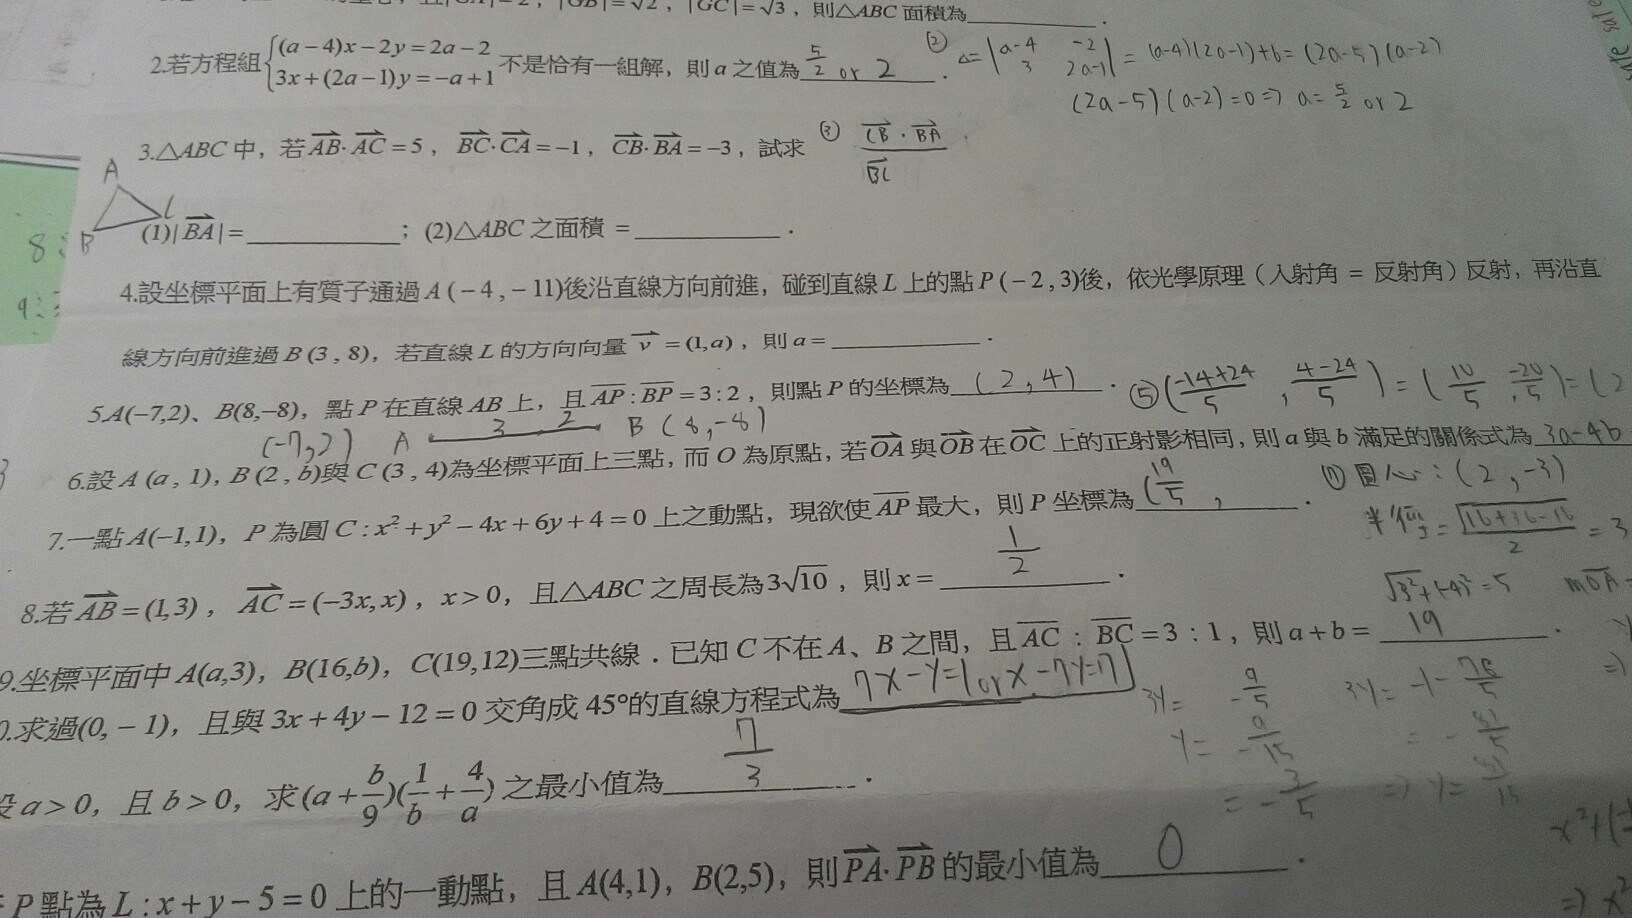 |GB|=√2，|GC|=√3，則△ABC 面積為________．
2.若方程組{(a−4)x−2y=2a−2
3x+(2a−1)y=−a+1 不是恰有一組解，則 a 之值為 5/2 or 2 ．
② △=|a-4 -2
3 2a-1| = (a-4)(2a-1)+6=(2a-5)(a-2)
(2a-5)(a-2)=0⇒ a=5/2 or 2
3.△ABC 中，若 AB·AC=5，BC·CA=−1，CB·BA=−3，試求
③ CB·BA
BC
A
B
C
(1)|BA|=________；(2)△ABC 之面積 =________．
4.設坐標平面上有質子通過 A(−4,−11)後沿直線方向前進，碰到直線 L 上的點 P(−2,3)後，依光學原理（入射角 = 反射角）反射，再沿直
線方向前進過 B(3,8)，若直線 L 的方向向量 v=(1,a)，則 a=________．
5.A(−7,2)、B(8,−8)，點 P 在直線 AB 上，且 AP:BP=3:2，則點 P 的坐標為 (2,4) ．
⑤(-14+24/5 , 4-24/5)=(10/5 , -20/5)=(2
(-7,2) A 3 2 B (8,-8)
6.設 A(a,1)，B(2,b)與 C(3,4)為坐標平面上三點，而 O 為原點，若 OA 與 OB 在 OC 上的正射影相同，則 a 與 b 滿足的關係式為 3a-4b
7.一點 A(−1,1)，P 為圓 C:x²+y²−4x+6y+4=0 上之動點，現欲使 AP 最大，則 P 坐標為 (19/5 , ．
圓心：(2,-3)
半徑=√16+36-16/2=3
√3²+(-4)²=5
8.若 AB=(1,3)，AC=(−3x,x)，x>0，且△ABC 之周長為 3√10，則 x= 1/2 ．
9.坐標平面中 A(a,3)，B(16,b)，C(19,12)三點共線．已知 C 不在 A、B 之間，且 AC：BC=3：1，則 a+b= 19 ．
0.求過(0,−1)，且與 3x+4y−12=0 交角成 45°的直線方程式為 7x-y=1 or x-7y=7
3y= -9/5
y= -9/15
= -3/5
設 a>0，且 b>0，求(a+b/9)(1/b+4/a)之最小值為 7/3 ．
P 點為 L:x+y−5=0 上的一動點，且 A(4,1)，B(2,5)，則 PA·PB 的最小值為 0 ．